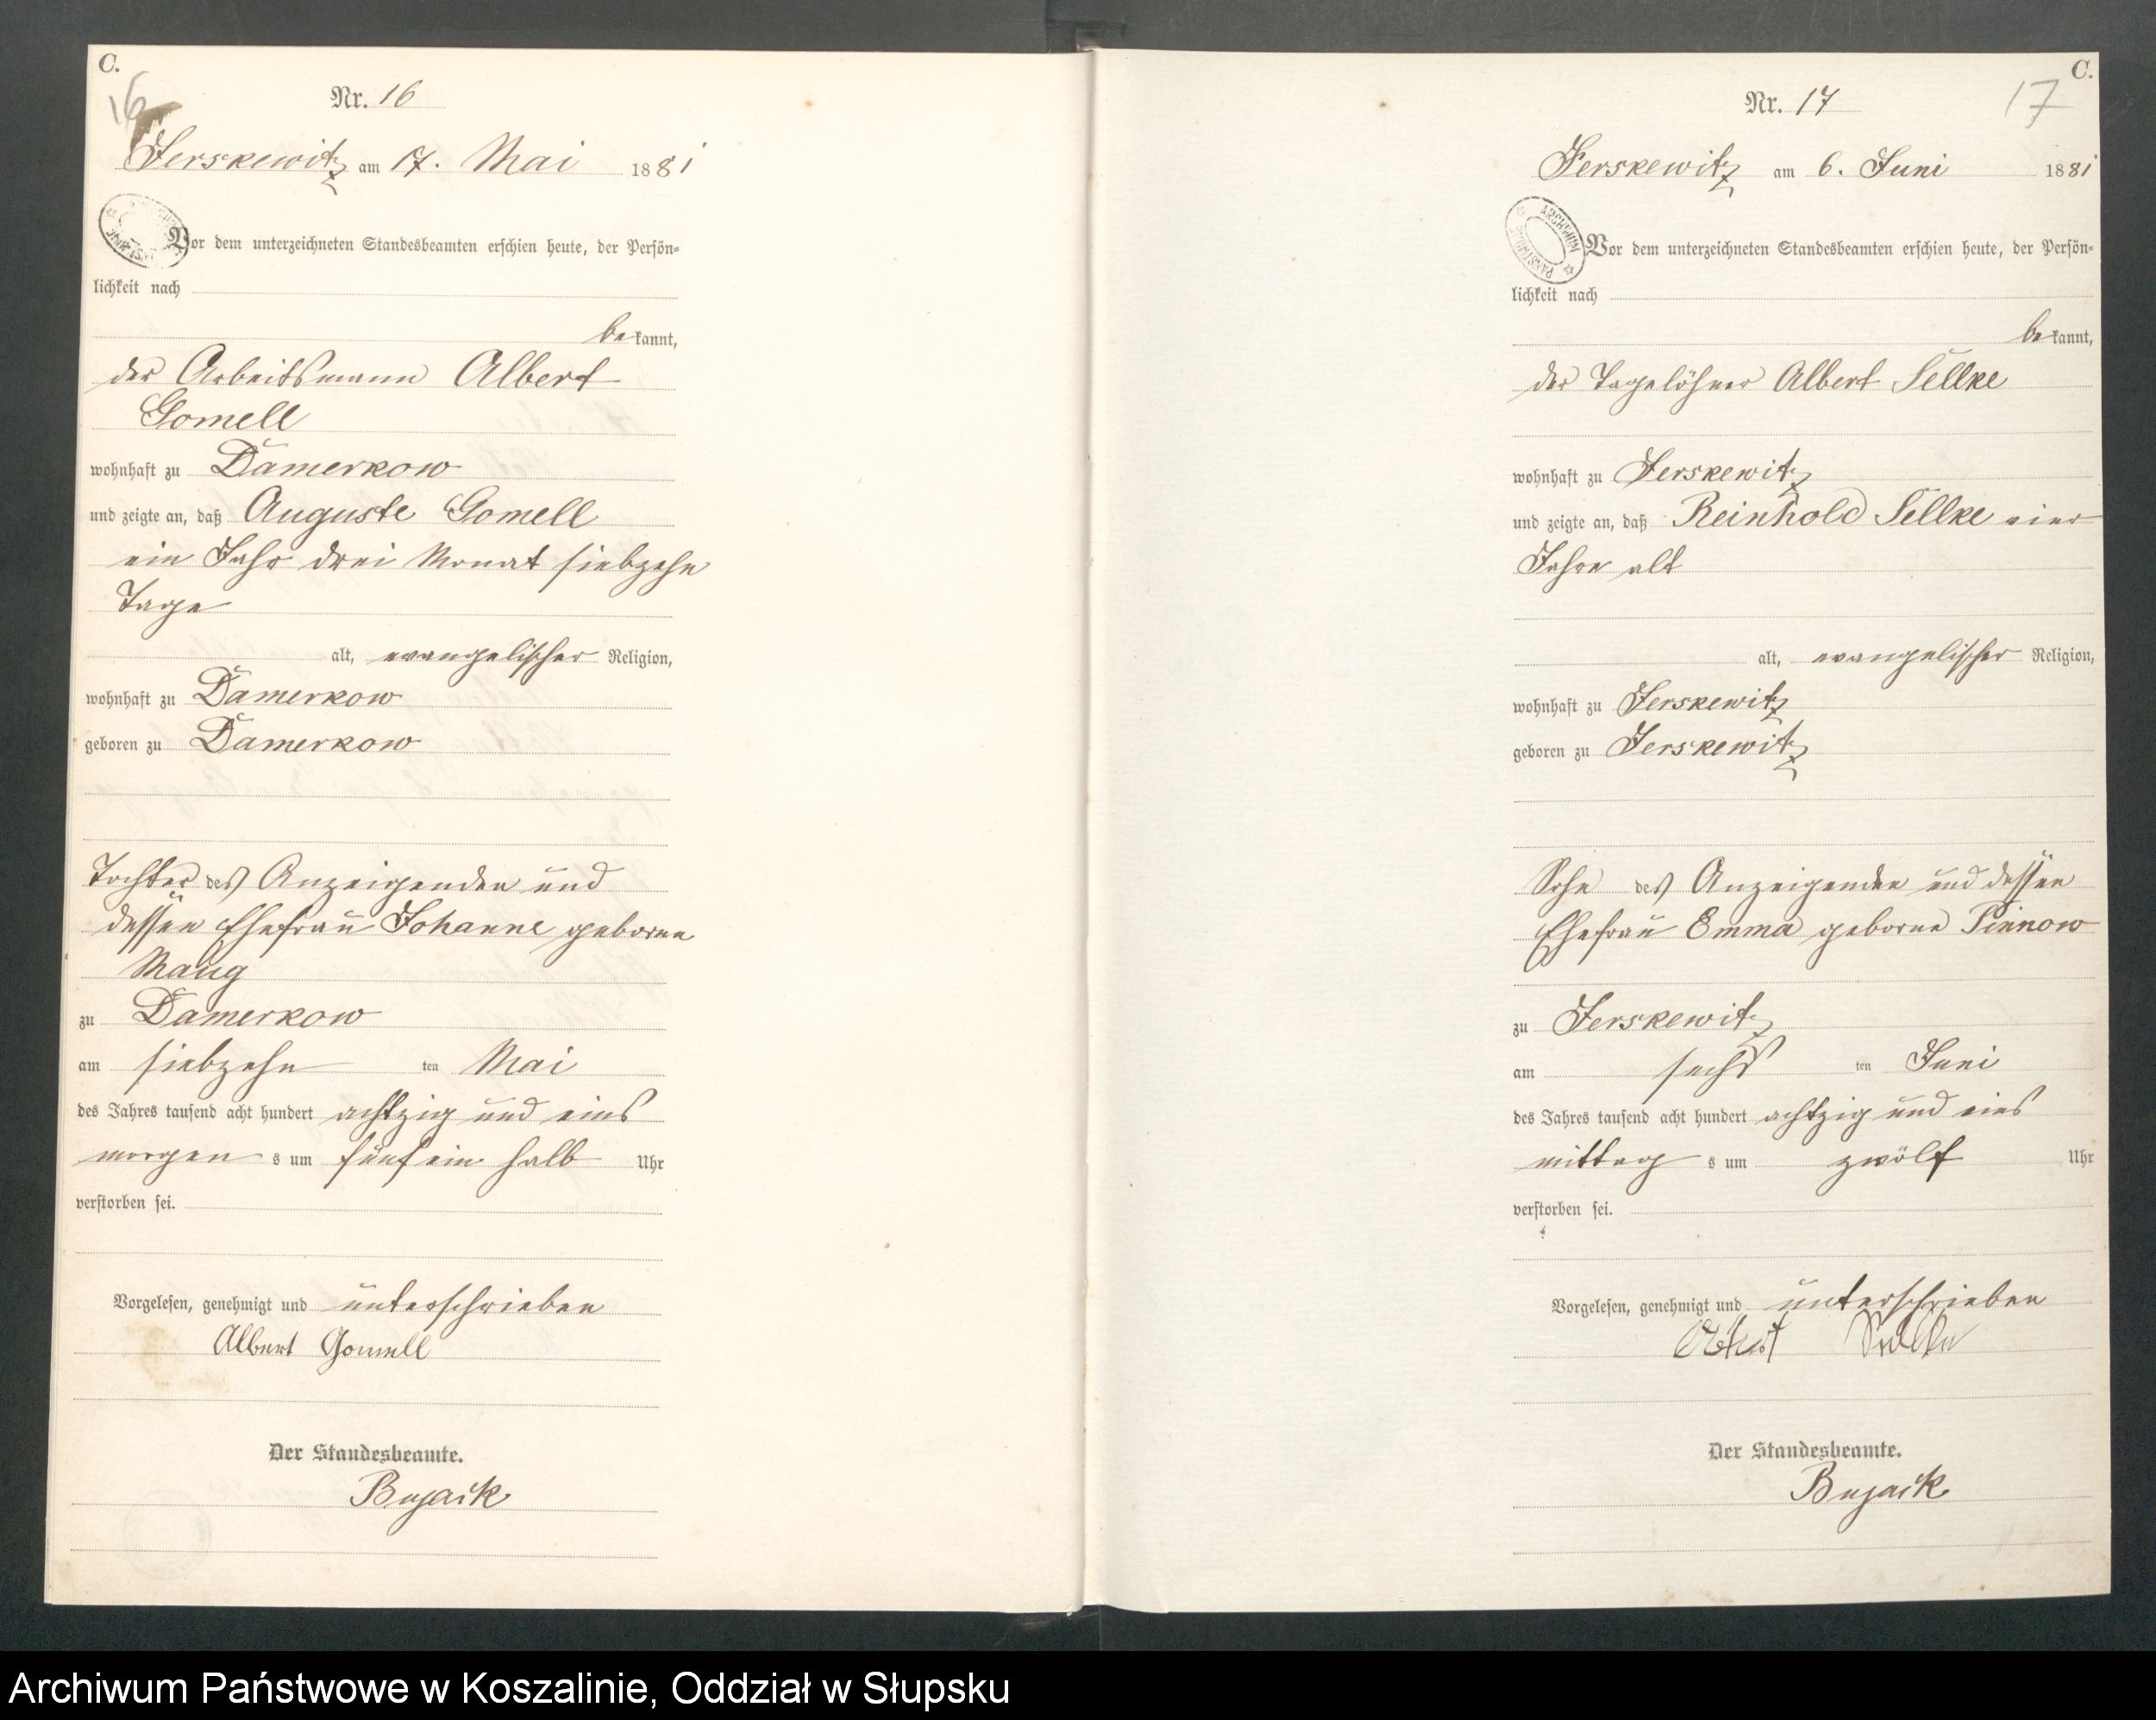 C.
16
Nr. 16
Jerskewitz am 17. Mai 1881
Vor dem unterzeichneten Standesbeamten erschien heute, der Persön-
lichkeit nach
bekannt,
der Arbeitsmann Albert
Gomell
wohnhaft zu Damerkow
und zeigte an, daß Auguste Gomell
ein Jahr drei Monat siebzehn
Tage
alt, evangelischer Religion,
wohnhaft zu Damerkow
geboren zu Damerkow
Tochter des Anzeigenden und
dessen Ehefrau Johanne geborne
Maug
zu Damerkow
am siebzehn ten Mai
des Jahres tausend acht hundert achtzig und eins
morgen s um fünf ein halb Uhr
verstorben sei.
Vorgelesen, genehmigt und unterschrieben
Albert Gomell
Der Standesbeamte.
Bujack
C.
17
Nr. 17
Jerskewitz am 6. Juni 1881
ARCHIWUM PAŃSTWOWE
Vor dem unterzeichneten Standesbeamten erschien heute, der Persön-
lichkeit nach
bekannt,
der Tagelöhner Albert Sellke
wohnhaft zu Jerskewitz
und zeigte an, daß Reinhold Sellke vier
Jahre alt
alt, evangelischer Religion,
wohnhaft zu Jerskewitz
geboren zu Jerskewitz
Sohn des Anzeigenden und dessen
Ehefrau Emma geborne Pinnow
zu Jerskewitz
am sechs ten Juni
des Jahres tausend acht hundert achtzig und eins
mittag s um zwölf Uhr
verstorben sei.
Vorgelesen, genehmigt und unterschrieben
Albert Sellke
Der Standesbeamte.
Bujack
Archiwum Państwowe w Koszalinie, Oddział w Słupsku